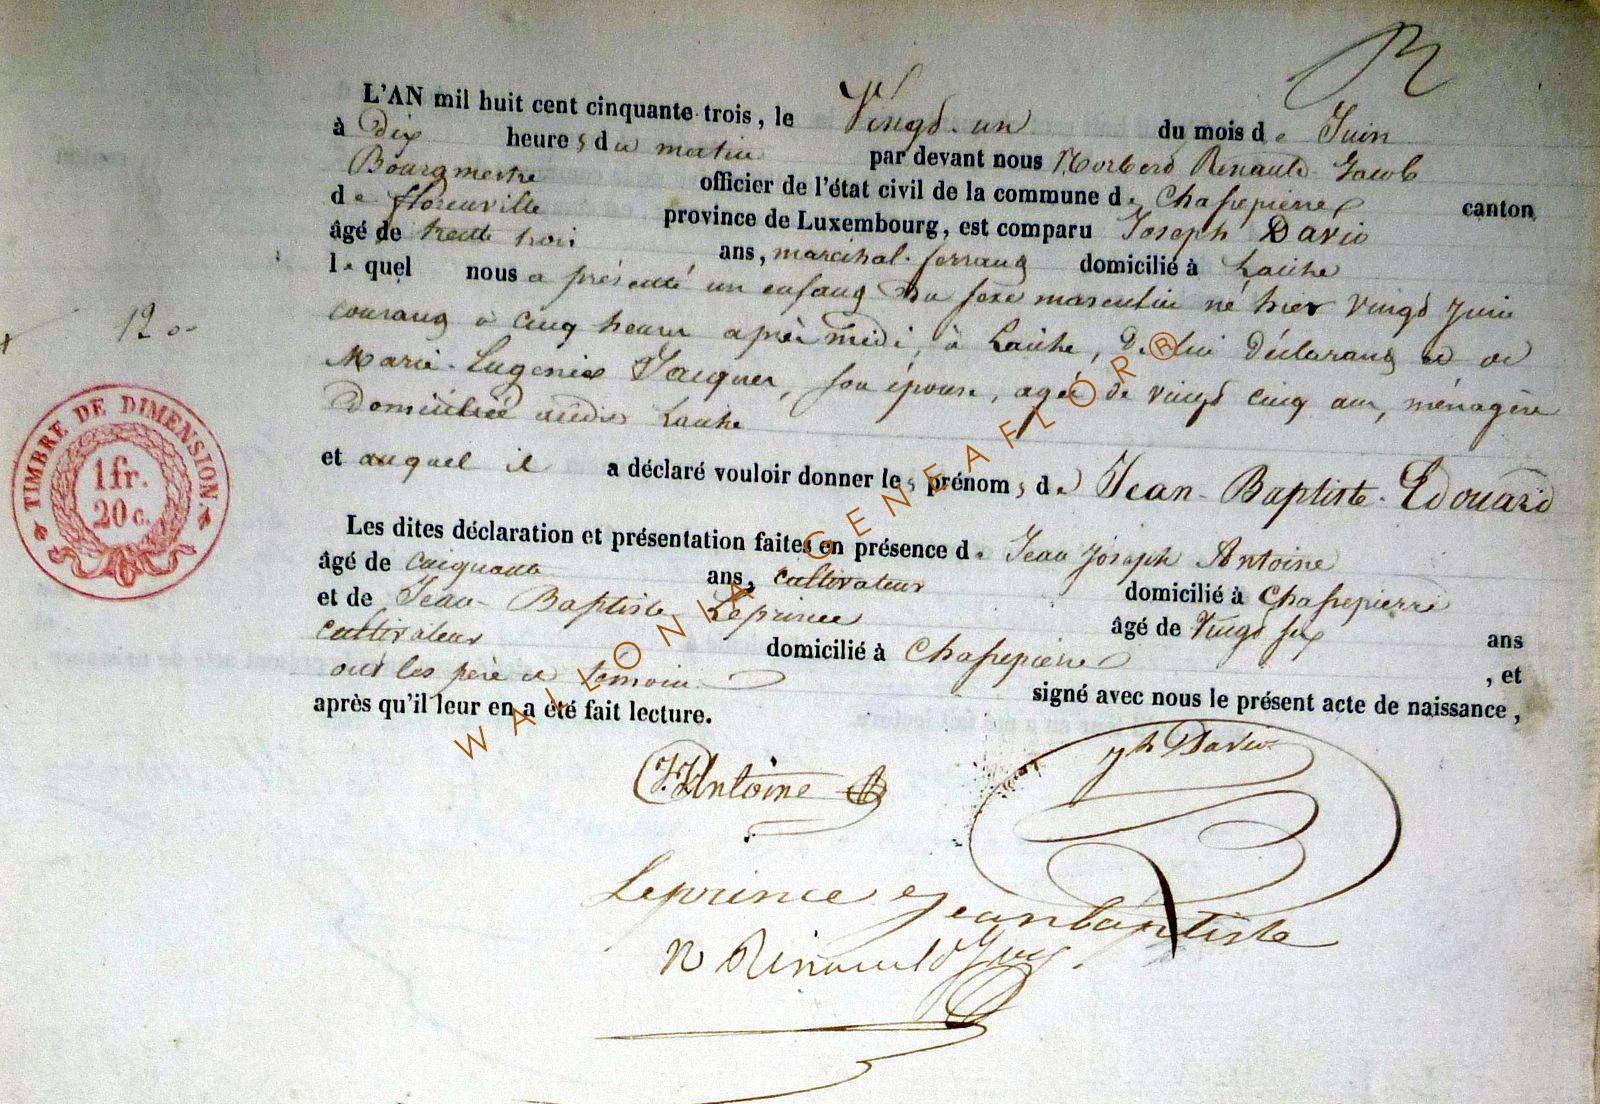 L'AN mil huit cent cinquante trois, le Vingt un du mois de Juin
à dix heures du matin par devant nous Norbert Renauld Jacob
Bourgmestre officier de l'état civil de la commune de Chassepierre canton
de florenville province de Luxembourg, est comparu Joseph David
âgé de trente trois ans, marechal ferrant domicilié à Laiche
lequel nous a présenté un enfant du sexe masculin né hier vingt Juin
courant à cinq heures après midi, à Laiche, de lui déclarant et de
Marie Eugenie Jacques, son épouse, agée de vingt cinq ans, ménagère
Domiciliée audit Laiche
et auquel il a déclaré vouloir donner les prénoms de Jean-Baptiste-Edouard
Les dites déclaration et présentation faites en présence de Jean Joseph Antoine
âgé de cinquante ans, cultivateur domicilié à Chassepierre
et de Jean-Baptiste Leprince âgé de Vingt six ans
cultivateur domicilié à Chassepierre, et
ont les père et témoins signé avec nous le présent acte de naissance,
après qu'il leur en a été fait lecture.
12
TIMBRE DE DIMENSION.
1 fr.
20 c.
J.J. Antoine
Jh David
Leprince Jeanbaptiste
N Renauld
WALLONIA GENEAFLOR®